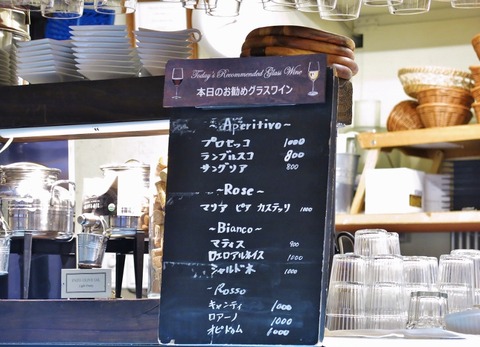 Today's Recommended Glass Wine
本日のお勧めグラスワイン
~Aperitivo~
プロセッコ 1000
ランブルスコ 800
サングリア 800
~Rose~
マリア ピア カステッリ 1000
~Bianco~
マティス 900
ロエロアルネイス 1000
シャルドネ 1000
-Rosso
キャンティ 1000
ロアーノ 1000
オピドゥム 1000